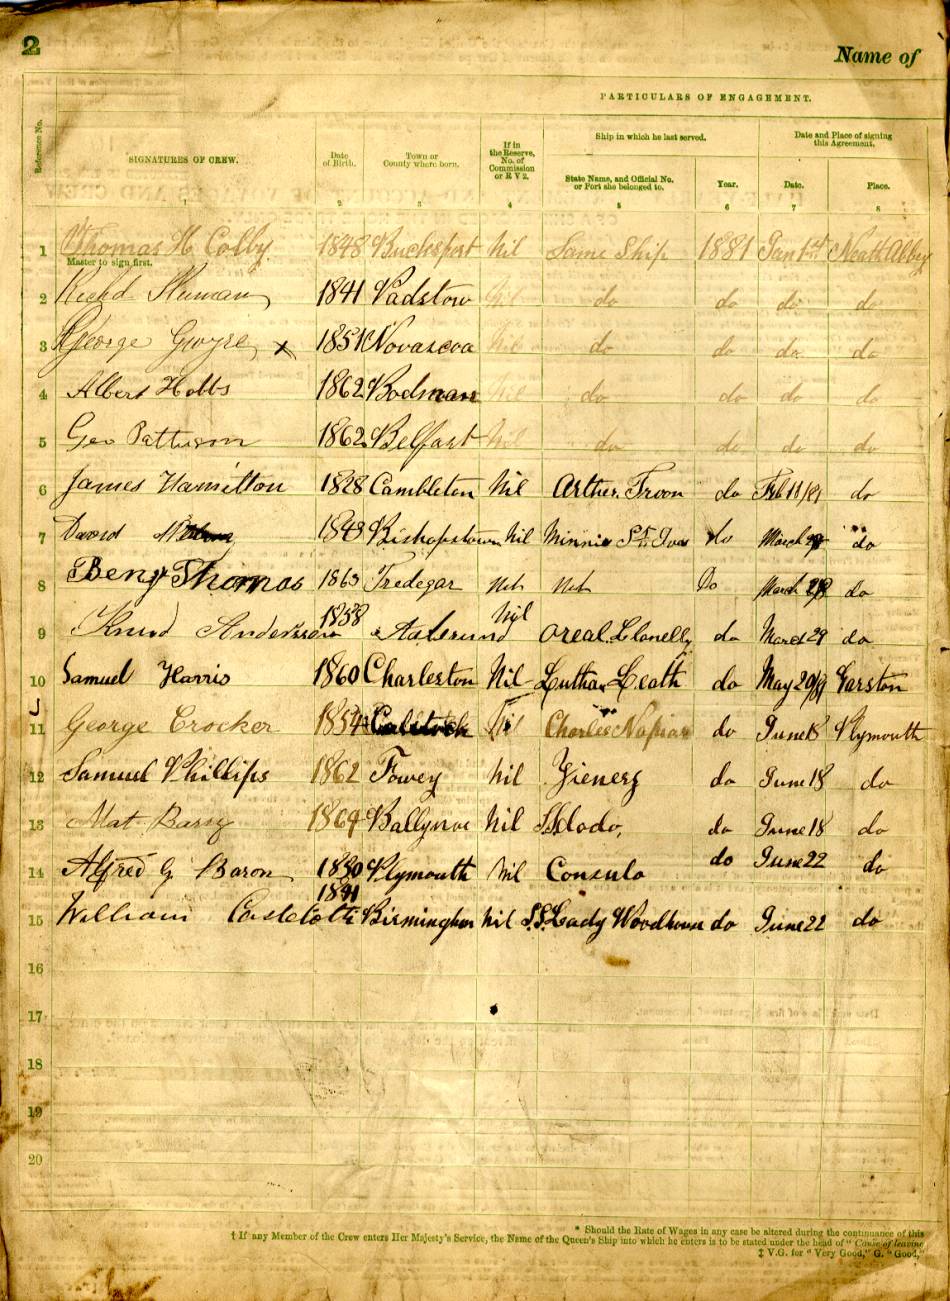 2
Name of
PARTICULARS OF ENGAGEMENT.
Reference No. SIGNATURES OF CREW. Date of Birth. Town or County where born. If in the Reserve, No. of Commission or R V 2. Ship in which he last served. Date and Place of signing this Agreement.
State Name, and Official No. or Port she belonged to. Year. Date. Place.
1 2 3 4 5 6 7 8
1 Thomas H Colby 1848 Bucksport Nil Same Ship 1881 Jan 1st Neath Abbey
Master to sign first.
2 Richd 1841 Padstow Nil do do do do
3 George Gwyre x 1851 Novascoa Nil do do do do
4 Albert Hobbs 1862 Bodman Nil do do do do
5 Geo Patterson 1862 Belfast Nil do do do do
6 James Hamilton 1828 Cambleton Nil Arther Troon do Feb 11/81 do
7 David 1848 Bishopstown Nil Minnie St Ives do March do
8 Benj Thomas 1863 Tredegar Do March do
9 Knud Anderssen 1858 Nil Llanelly do March 29 do
10 Samuel Harris 1860 Charleston Nil Luthan Leath do May 20/81 Garston
11 George Crocker 1854 Calstock Nil Charles Napiar do June 8 Plymouth
12 Samuel Phillips 1862 Fowey Nil do June 18 do
13 Mat Barry 1864 Nil do June 18 do
14 Alfred G Baron 1830 Plymouth Nil Consulo do June 22 do
15 William 1841 Birmingham Nil S.S. Lady Woodhouse do June 22 do
16
17
18
19
20
* Should the Rate of Wages in any case be altered during the continuance of this
† If any Member of the Crew enters Her Majesty's Service, the Name of the Queen's Ship into which he enters is to be stated under the head of "Cause of leaving
‡ V.G. for "Very Good," G. "Good,"